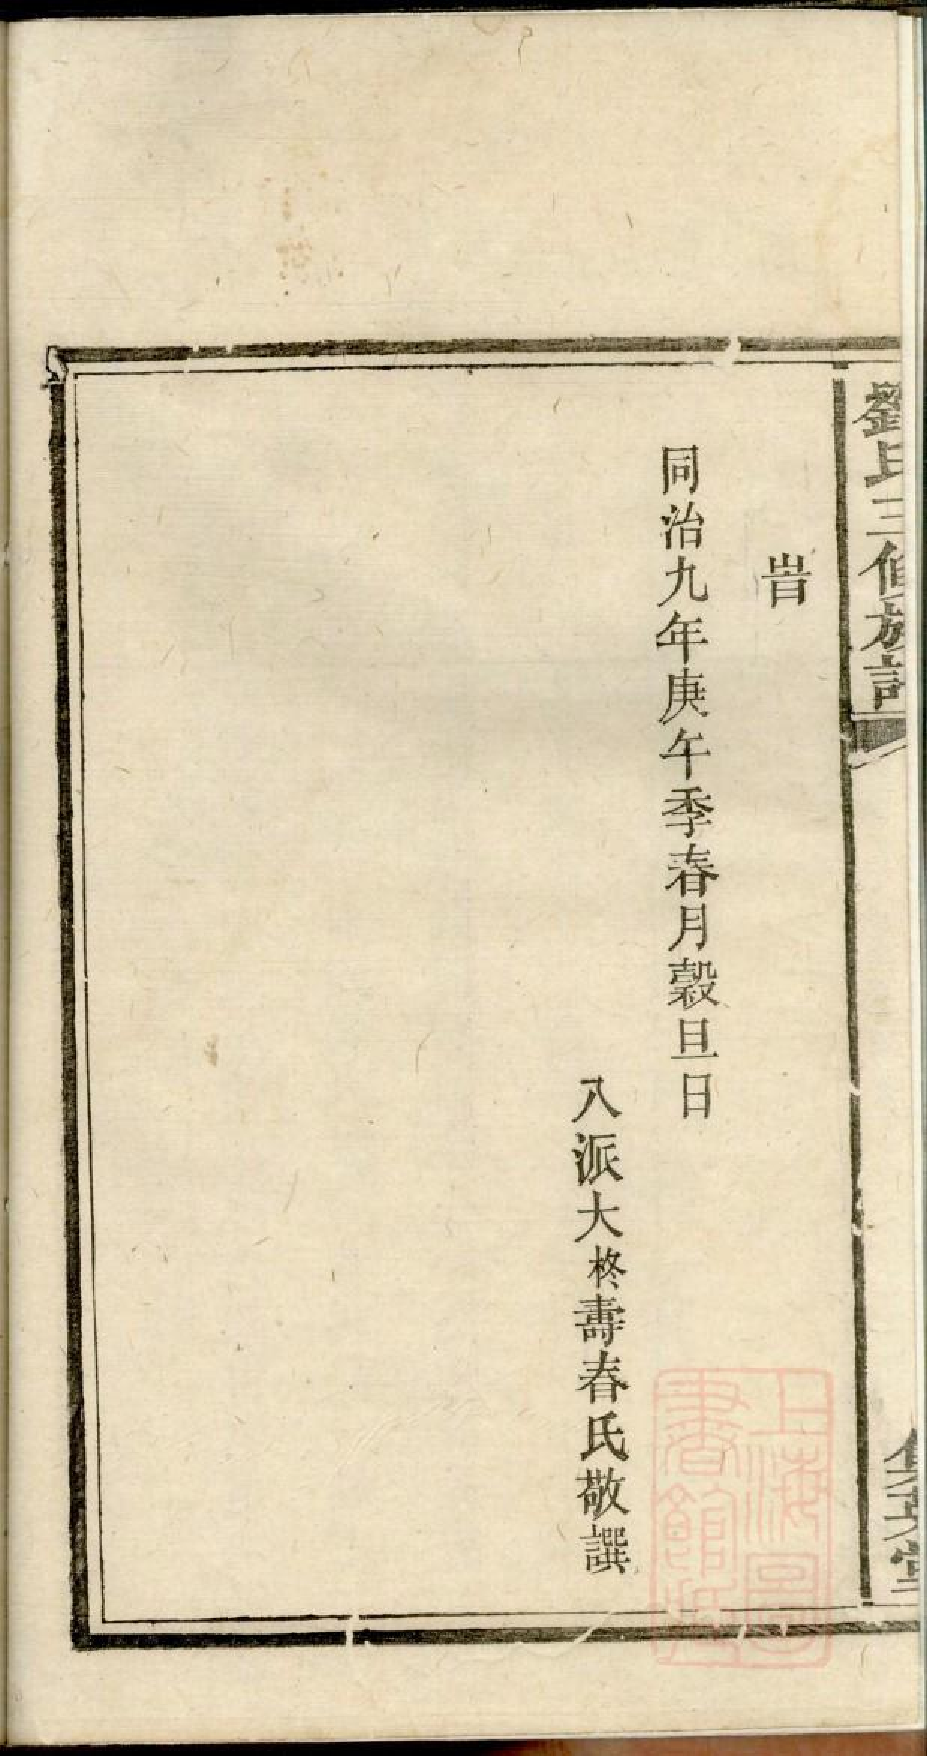 劉氏三修族譜
旹
同治九年庚午季春月穀旦日
八派大柊壽春氏敬譔
上海圖
書館藏